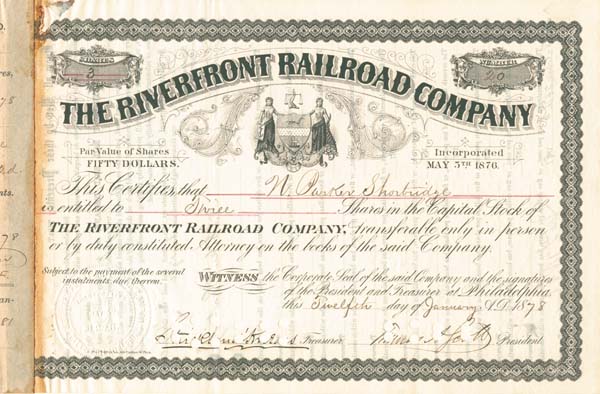 SHARES
3
NUMBER
20
THE RIVERFRONT RAILROAD COMPANY
Par Value of Shares
FIFTY DOLLARS.
Incorporated
MAY 5TH 1876.
This Certifies, that W. Parker Shortridge
is entitled to Three Shares in the Capital Stock of
THE RIVERFRONT RAILROAD COMPANY, transferable only in person
or by duly constituted Attorney on the books of the said Company.
Subject to the payment of the several
instalments due thereon.
WITNESS the Corporate Seal of the said Company and the signatures
of the President and Treasurer at Philadelphia,
this Twelfth day of January A.D. 1878
Treasurer
President